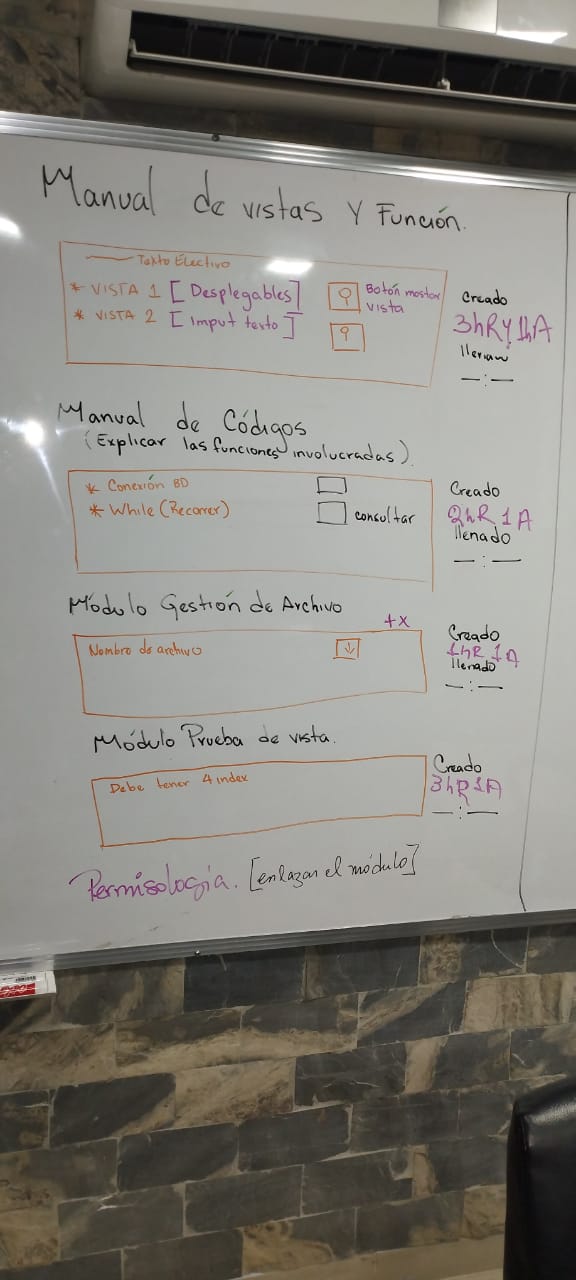 Manual de vistas Y Función.
Texto Electivo
* VISTA 1 [Desplegables]
Botón mostrar vista
* VISTA 2 [Imput texto]
Creado
3hR y 1hA
— : —
Manual de Códigos
(Explicar las funciones involucradas).
* Conexión BD
* While (Recorrer)
consultar
Creado
2hR 1A
llenado
— : —
Módulo Gestión de Archivo
+x
Nombre de archivo
↓
Creado
1hR 1A
llenado
— : —
Módulo Prueba de vista.
Debe tener 4 index
Creado
3hR 1A
— : —
Permisología. [enlazar el módulo]